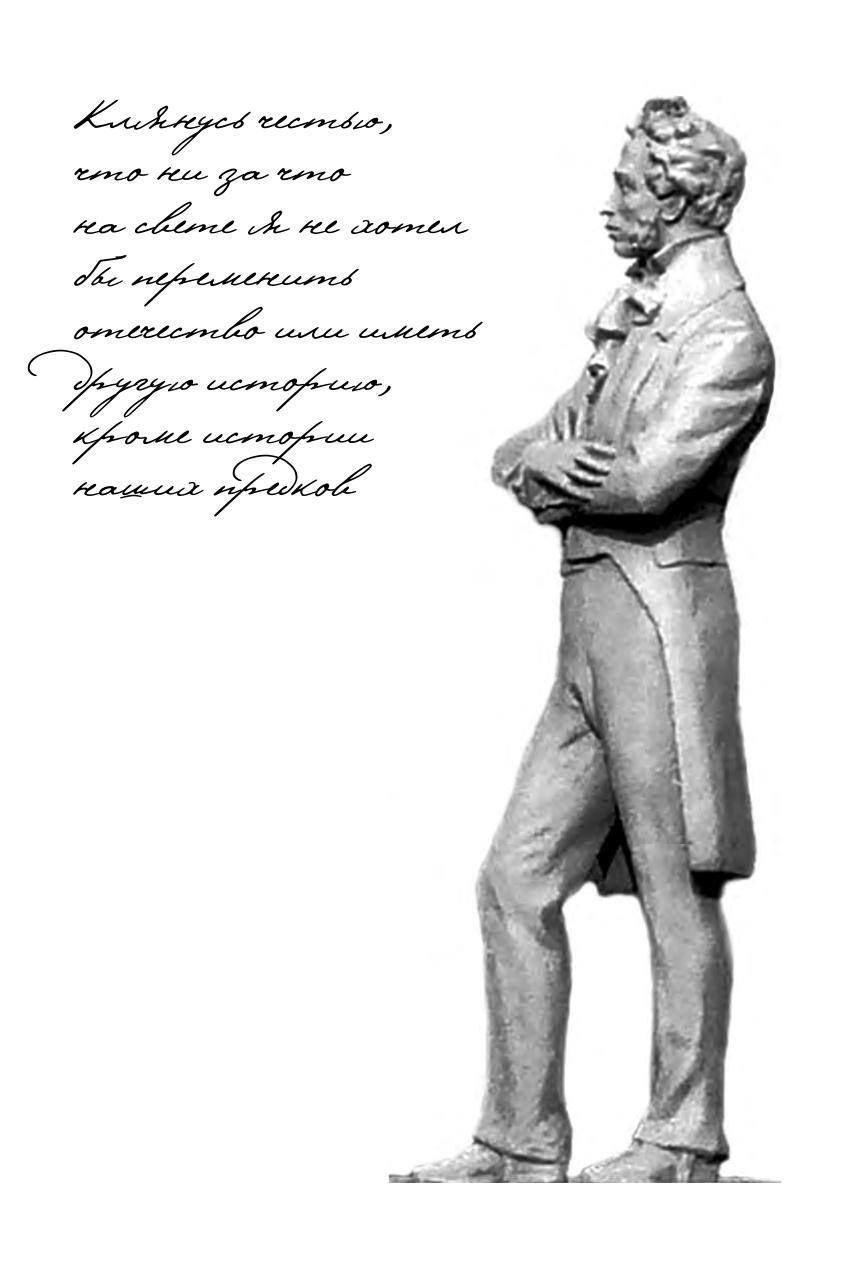 Клянусь честью,
что ни за что
на свете я не хотел
бы переменить
отечество или иметь
другую историю,
кроме истории
наших предков